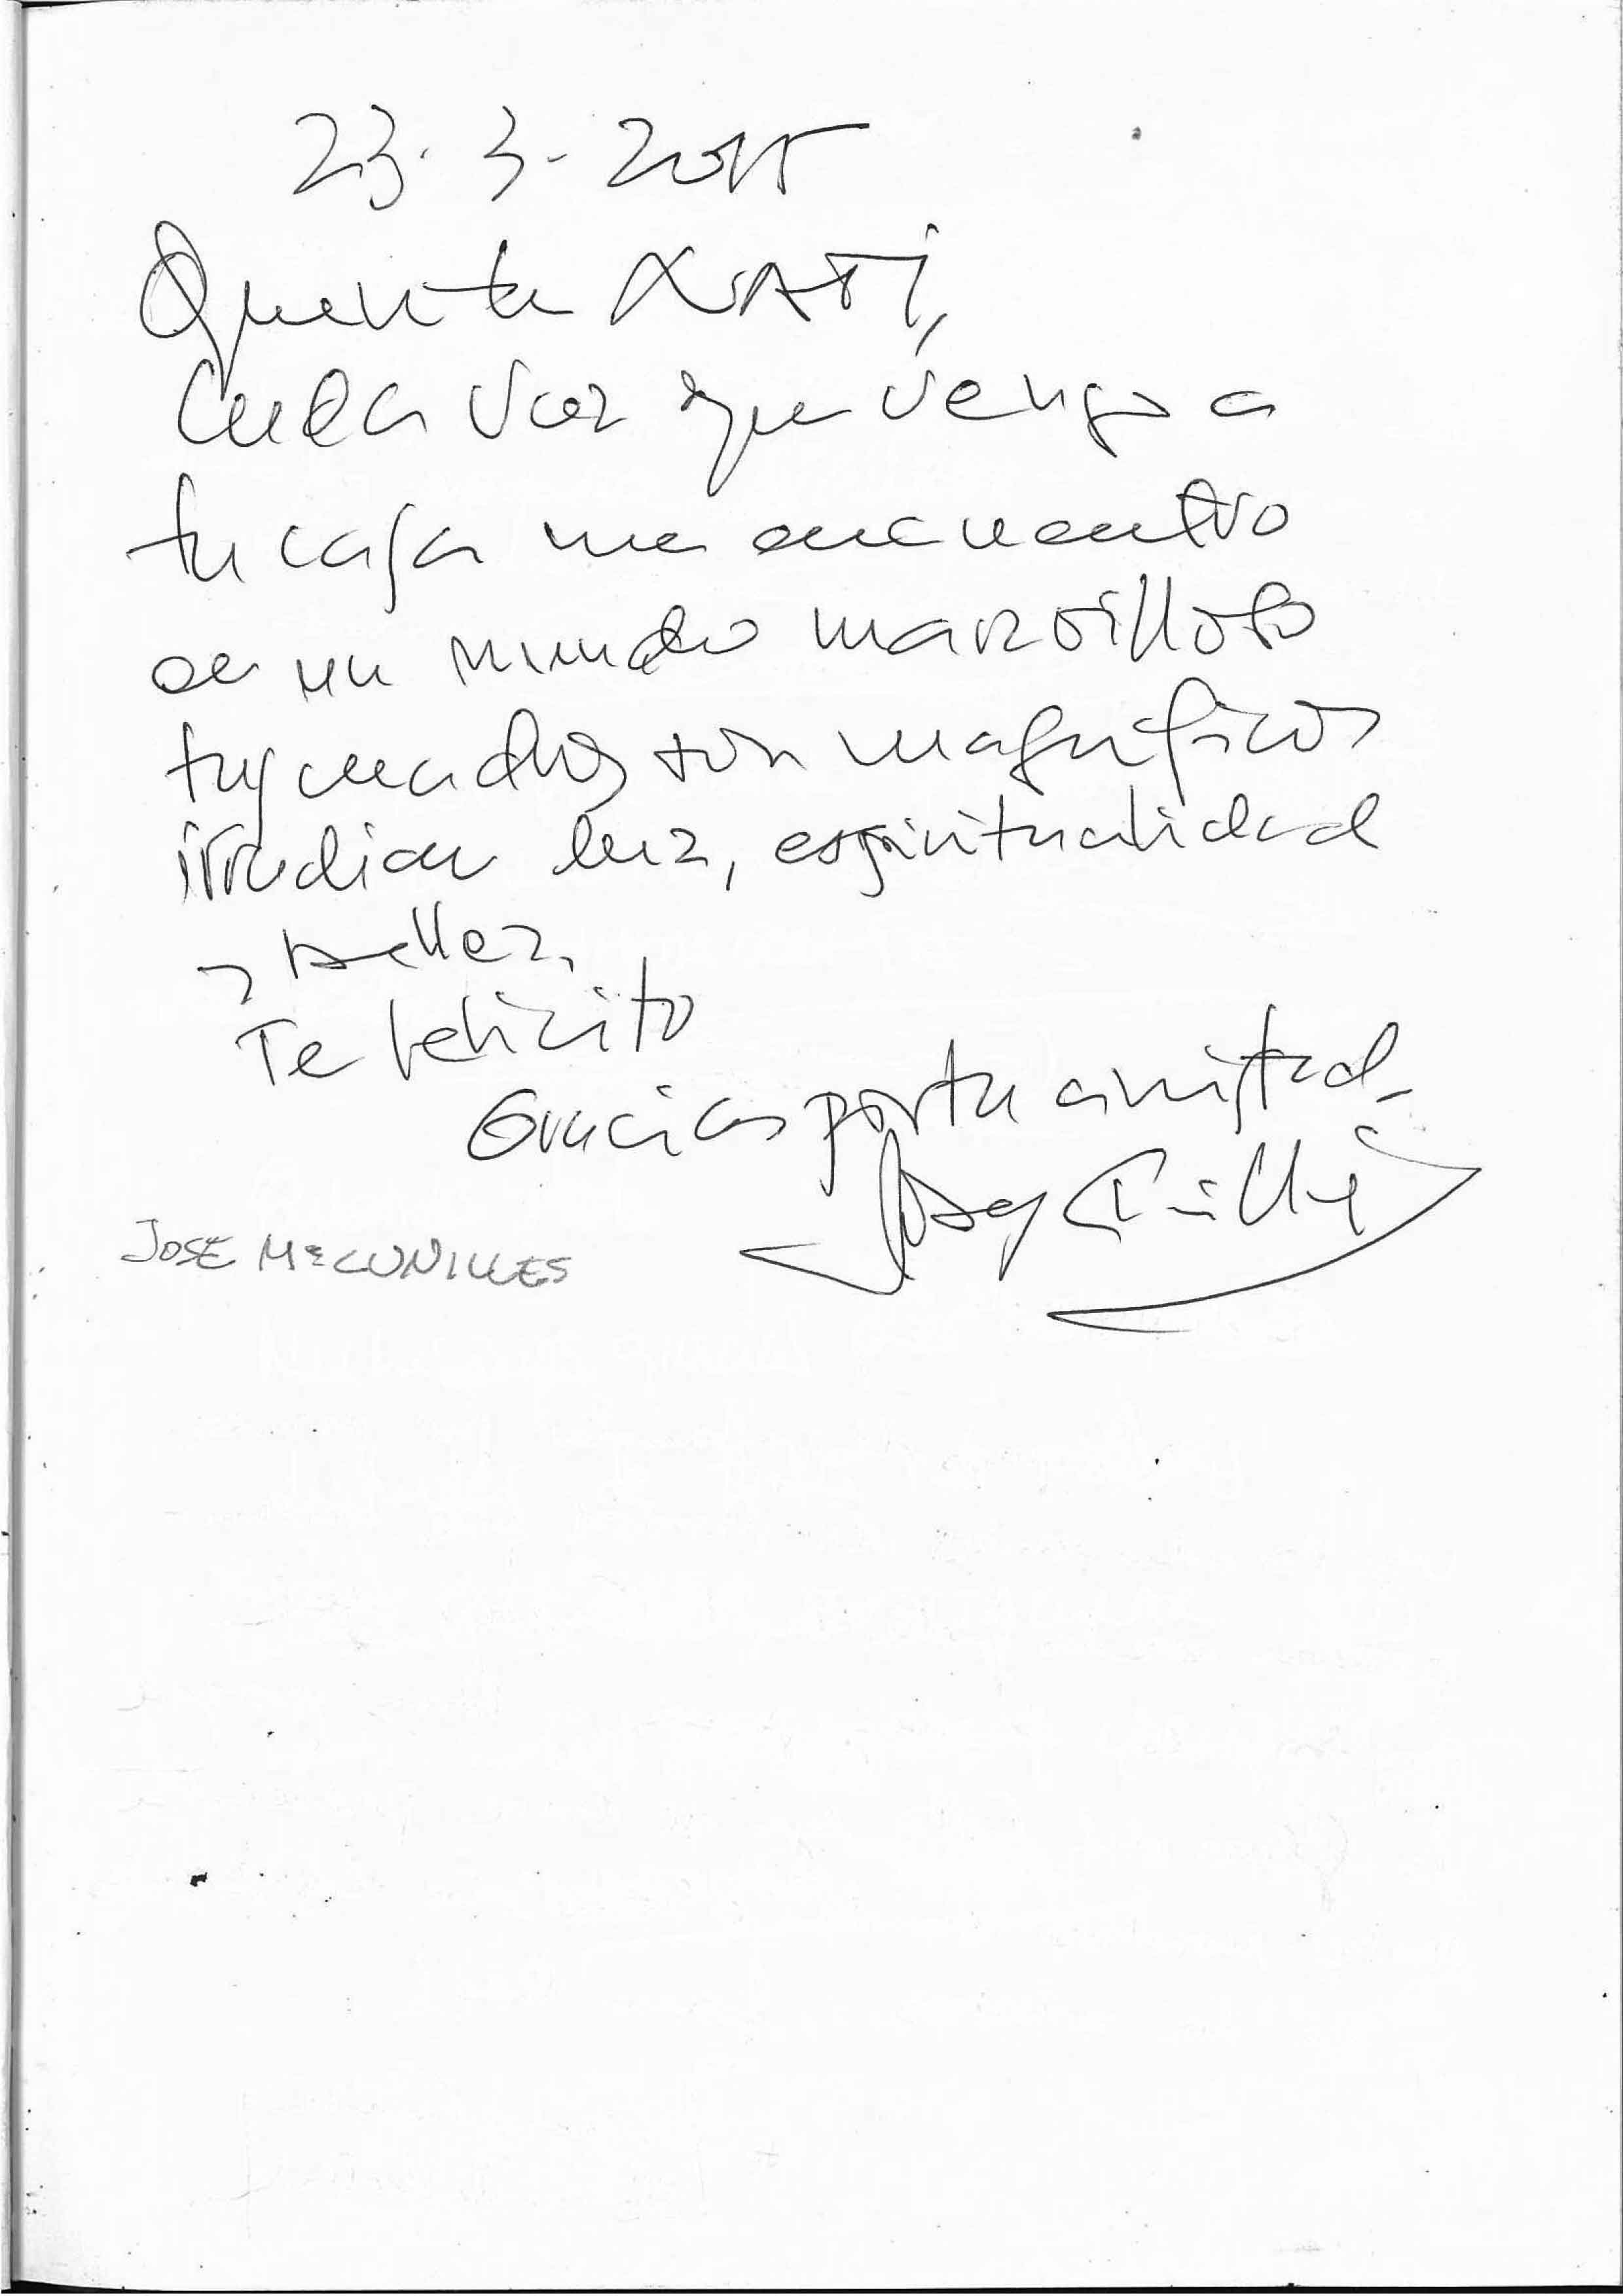 23. 3. 2015
Querida NATI,
Cada vez que vengo a
tu casa me encuentro
en un mundo maravilloso
tus cuadros son magnificos
irradian luz, espiritualidad
y bellez.
Te felicito
Gracias por tu amistad.
Josep
JOSE Mª CUNILLES